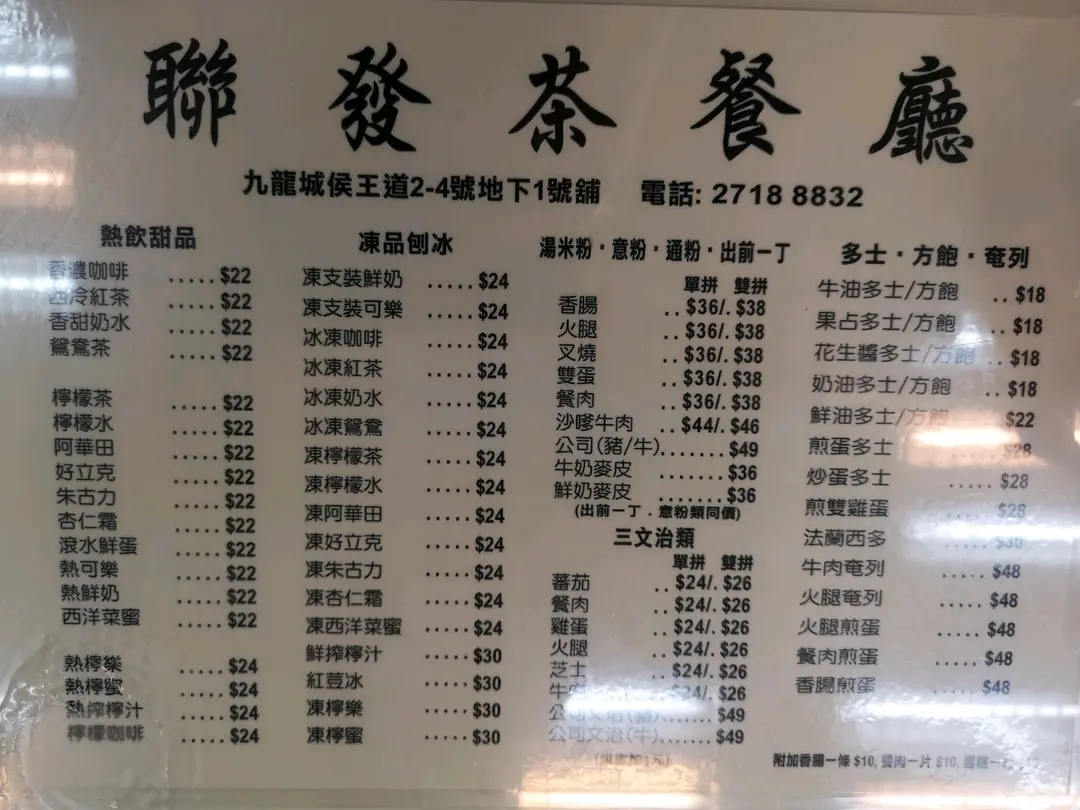 聯發茶餐廳
九龍城侯王道2-4號地下1號舖 電話: 2718 8832
熱飲甜品
香濃咖啡 ..... $22
西冷紅茶 ..... $22
香甜奶水 ..... $22
鴛鴦茶 ..... $22
檸檬茶 ..... $22
檸檬水 ..... $22
阿華田 ..... $22
好立克 ..... $22
朱古力 ..... $22
杏仁霜 ..... $22
滾水鮮蛋 ..... $22
熱可樂 ..... $22
熱鮮奶 ..... $22
西洋菜蜜 ..... $22
熱檸樂 ..... $24
熱檸蜜 ..... $24
熱搾檸汁 ..... $24
檸檬咖啡 ..... $24
凍品刨冰
凍支裝鮮奶 ..... $24
凍支裝可樂 ..... $24
冰凍咖啡 ..... $24
冰凍紅茶 ..... $24
冰凍奶水 ..... $24
冰凍鴛鴦 ..... $24
凍檸檬茶 ..... $24
凍檸檬水 ..... $24
凍阿華田 ..... $24
凍好立克 ..... $24
凍朱古力 ..... $24
凍杏仁霜 ..... $24
凍西洋菜蜜 ..... $24
鮮搾檸汁 ..... $30
紅荳冰 ..... $30
凍檸樂 ..... $30
凍檸蜜 ..... $30
湯米粉·意粉·通粉·出前一丁
單拼 雙拼
香腸 .. $36/. $38
火腿 .. $36/. $38
叉燒 .. $36/. $38
雙蛋 .. $36/. $38
餐肉 .. $36/. $38
沙嗲牛肉 .. $44/. $46
公司(豬/牛)....... $49
牛奶麥皮 ....... $36
鮮奶麥皮 ....... $36
(出前一丁．意粉類同價)
三文治類
單拼 雙拼
蕃茄 .. $24/. $26
餐肉 .. $24/. $26
雞蛋 .. $24/. $26
火腿 .. $24/. $26
芝士 .. $24/. $26
牛 .. $24/. $26
公司文治(豬)....... $49
公司文治(牛)....... $49
多士·方飽·奄列
牛油多士/方飽 .. $18
果占多士/方飽 .. $18
花生醬多士/方飽 .. $18
奶油多士/方飽 .. $18
鮮油多士/方飽 .. $22
煎蛋多士 ..... $28
炒蛋多士 ..... $28
煎雙雞蛋 ..... $28
法蘭西多 ..... $36
牛肉奄列 ..... $48
火腿奄列 ..... $48
火腿煎蛋 ..... $48
餐肉煎蛋 ..... $48
香腸煎蛋 ..... $48
附加香腸一條 $10, 餐肉一片 $10,